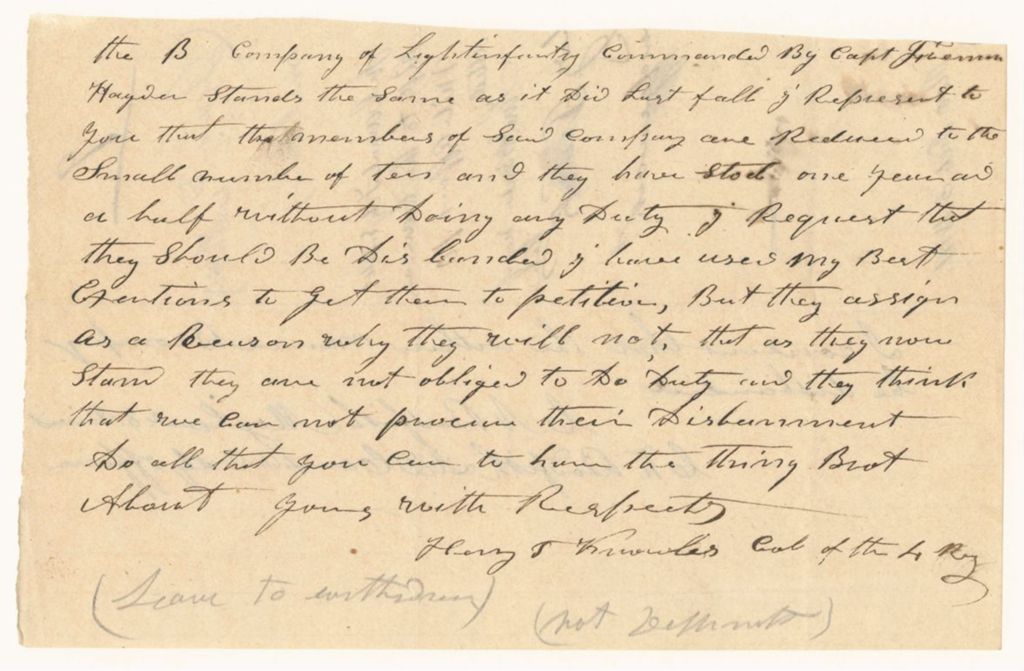 the B Company of Lightinfantry Commanded By Capt Freeman
Hayden Stands the Same as it Did Last fall y Represent to
you that the members of Said Company are Reduced to the
Small number of ten and they have Stod one year and
a half without Doing any Duty y Request that
they Should Be Disbanded y have used my Best
Exertions to Get them to petition, But they assign
as a Reason why they will not, that as they now
Stand they are not obliged to Do Duty and they think
that we Can not procure their Disbanment
Do all that you Can to have the thing Brot
About yours with Respects
Henry T Knowles Col of the 4 Reg
(Leave to withdraw)
(not